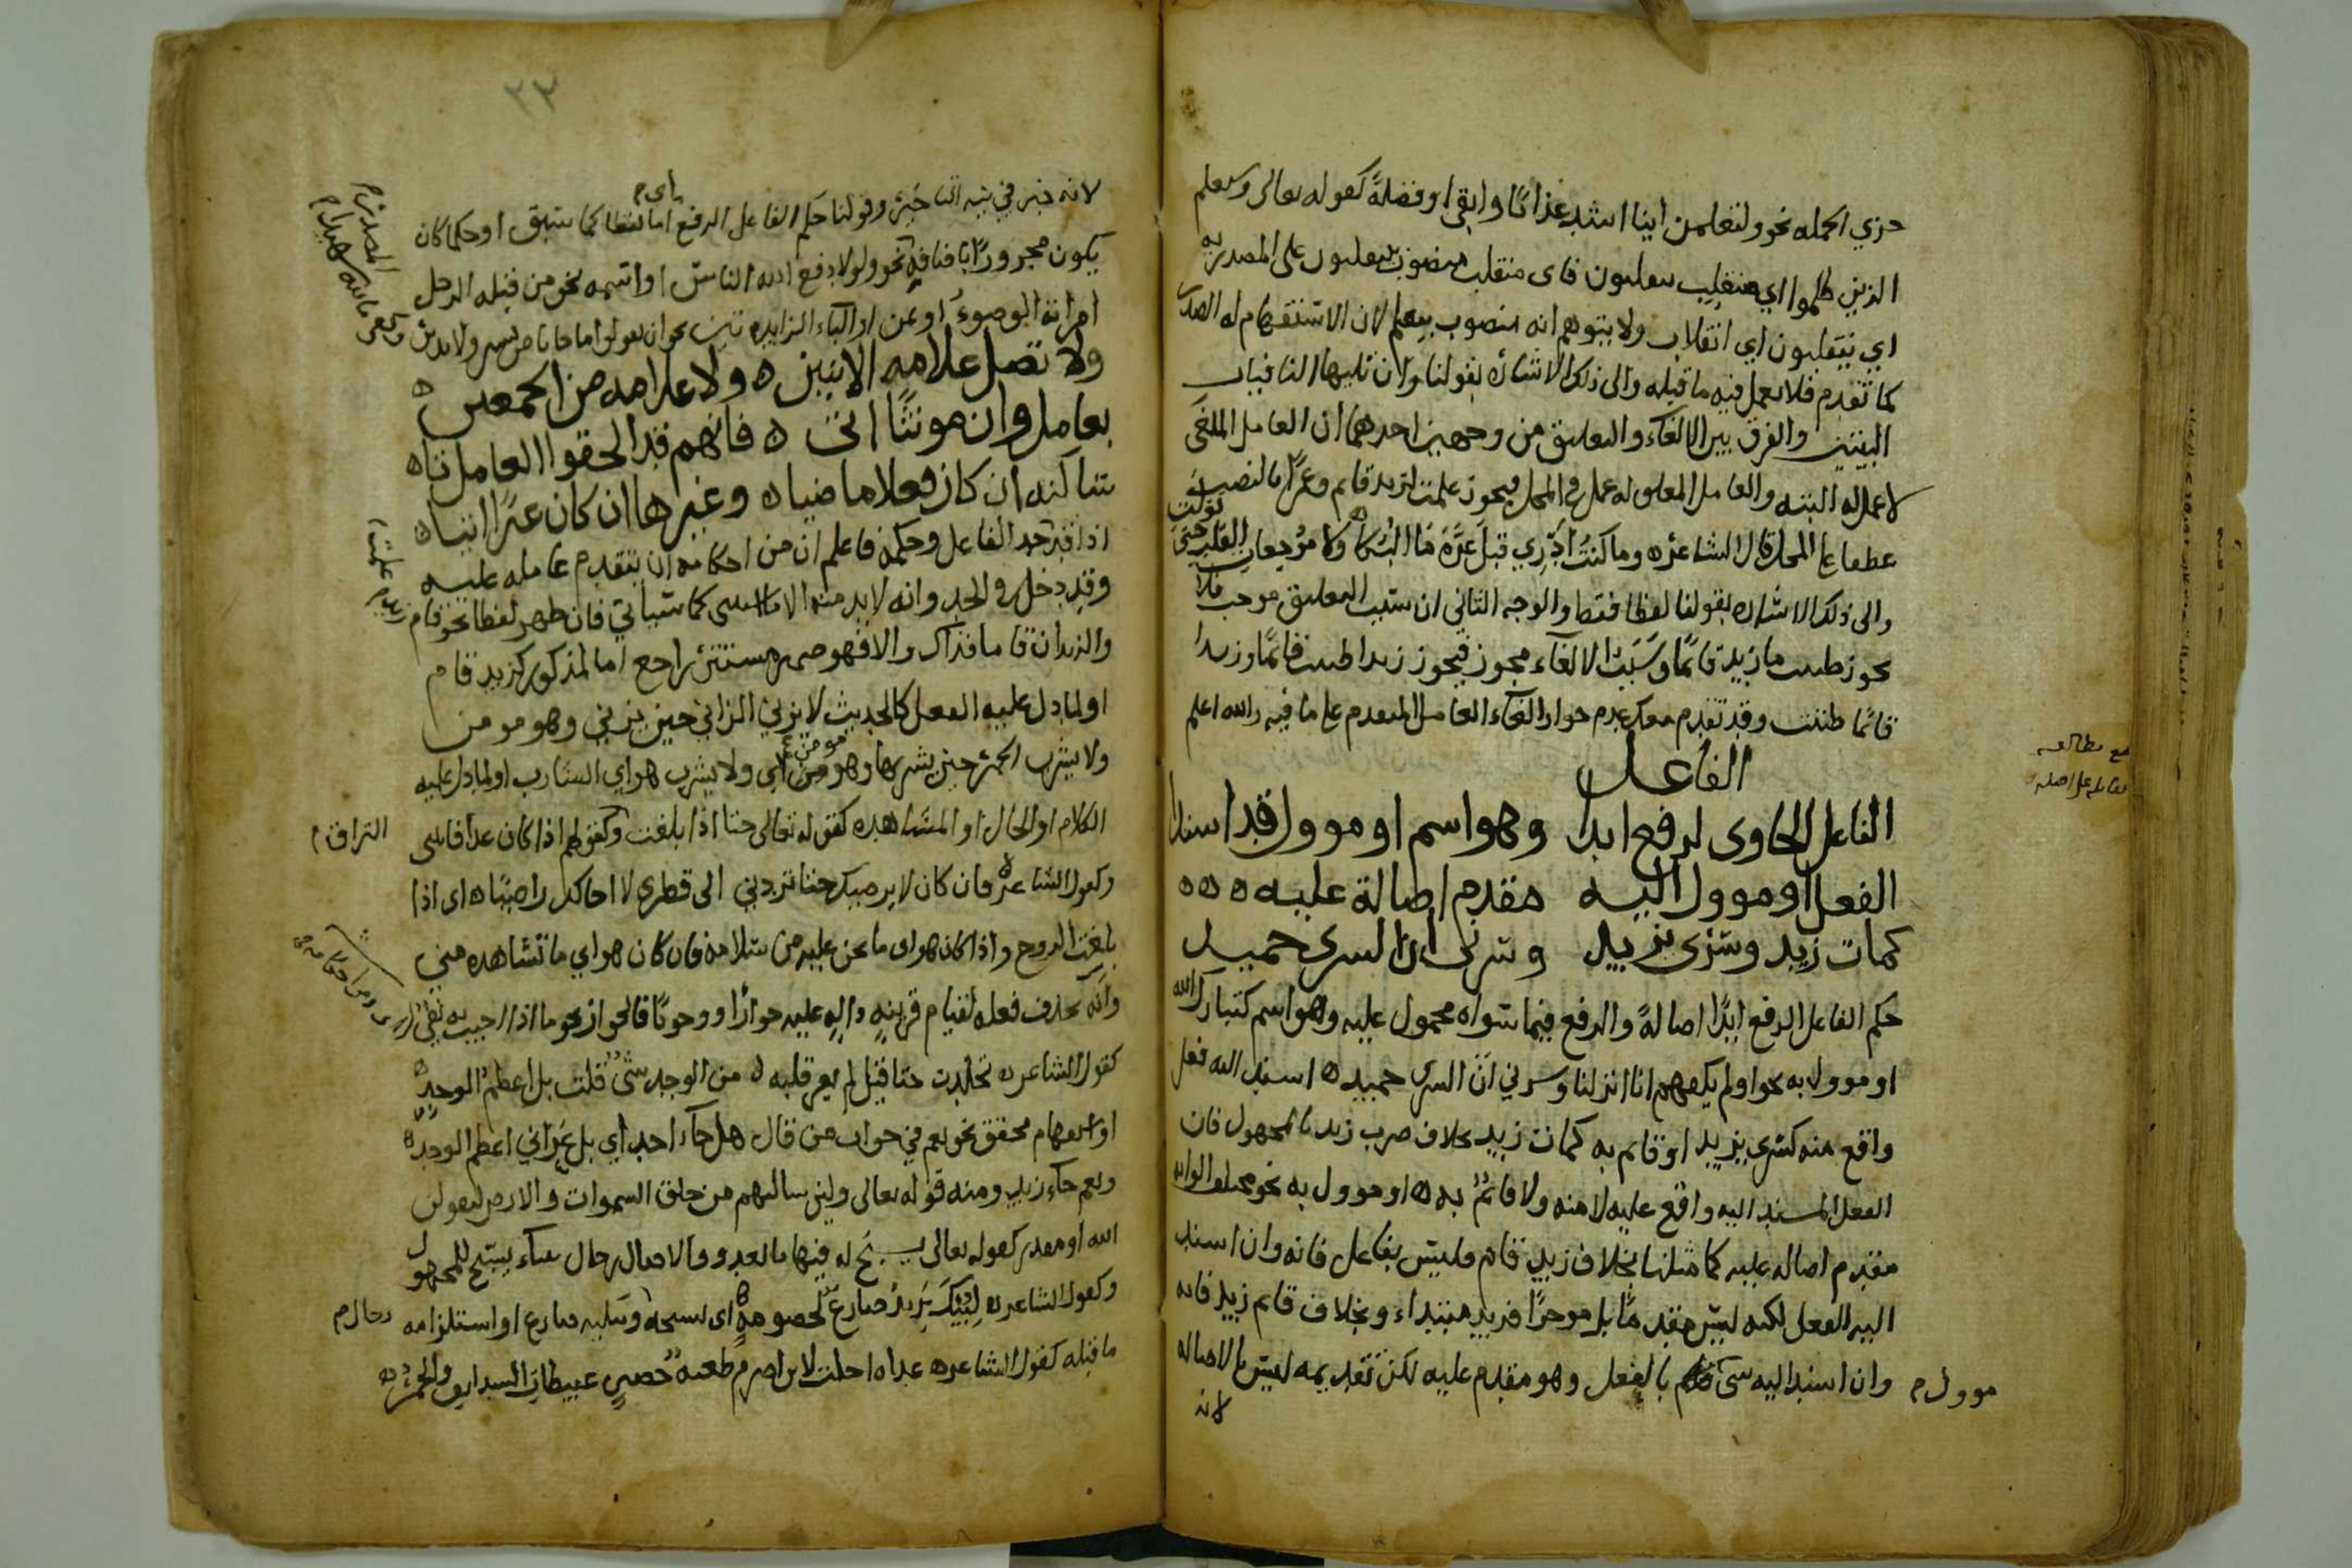 حزي الجمله نحو ولتعلمن اينا اشد عذابا وابقى او فضلة كقوله تعالى وسيعلم
الذين ظلموا اي منقلب ينقلبون فاى منقلب منصوب بينقلبون على المصدريه
اي ينقلبون اي انقلاب ولا يتوهم انه منصوب بيعلم لان الاستفهام له الصدر
كما تقدم فلا يعمل فيه ما قبله والى ذلك الاشارة بقولنا ولان تليها النافيات
البتت والفرق بين الالغاء والتعليق من وجهين احدهما ان العامل الملغى
لا عمل له البته والعامل المعلق له عمل في المحل فيجوز علمت لزيد قايم وعمرا بالنصب
عطفا على المحل قال الشاعره وما كنت ادري قبل عزة ما البكا ولا موجعات القلب حتى تولت
والى ذلك الاشاره بقولنا لفظا فقط والوجه الثاني ان سبب التعليق موجب فلا
يجوز ظننت ما زيد قائما وسبب الالغاء مجوز فيجوز زيدا ظننت قائما وزيدا
قائما ظننت وقد تقدم معك عدم جواز الغاء العامل المتقدم على ما فيه والله اعلم
الفاعل
الفاعل الحاوى لرفع ابدا وهو اسم او موول قد اسندا
الفعل او موول اليه مقدم اصالة عليه ه ه ه
كمات زيد وشرى يزيد وسرنى ان السرى حميد
حكم الفاعل الرفع ابدا اصالة والرفع فيما سواه محمول عليه وهو اسم كتبارك الله
او موول به نحو اولم يكفهم انا انزلنا وسرني ان السرى حميد ه اسند اليه فعل
واقع منه كشرى يزيد او قائم به كمات زيد بخلاف ضرب زيد بالمجهول فان
الفعل المسند اليه واقع عليه لا منه ولا قائم به ه او موول به نحو مختلف الوانه
مقدم اصاله عليه كما مثلنا بخلاف زيد قام فليس بفاعل فانه وان اسند
اليه الفعل لكنه ليس مقدما بل موخرا فزيد مبتداء وبخلاف قايم زيد فانه
وان اسند اليه شى موول م بالفعل وهو مقدم عليه لكن تقديمه ليس بالاصاله
لانه
مع مطالعه
مقابله على اصله
٢٣
لانه خبر في نية التاخير وقولنا حكم الفاعل الرفع اى م اما لفظا كما سبق او حكما كان
يكون مجرورا باضافة نحو ولولا دفع الله الناس او اسمه نحو من قبله الرجل
امراته الوضوء او بمن او الباء الزايدة تين نحو ان تقولوا ما جانا من بشير ولا نذير
وكفى بالله شهيدا م
المصدر م
ولا تصل علامه الاثنين ه ولا علامه من الجمعين ه
بعامل وان مونثا اتى ه فانهم قد الحقوا العامل تاه
ساكنه ان كان فعلا ماضيا ه وغيرها ان كان غيرا اتيا ه
اذا قد حد الفاعل وحكمه فاعلم ان من احكامه ان يتقدم عامله عليه
وقد دخل في الحد وانه لابد منه كما سياتي فان ظهر لفظا نحو قام زيد
والزيدان قاما فذاك والا فهو ضمير مستتر راجع اما لمذكور كزيد قام
او لما دل عليه الفعل كالحديث لا يزني الزاني حين يزني وهو مومن
ولا يشرب الخمر حين يشربها وهو مومن اي ولا يشرب هو اي الشارب او لما دل عليه
الكلام او الحال او المشاهده كقوله تعالى حتا اذا بلغت التراقي م وكقولهم اذا كان غدا فاتنى
وكقول الشاعره فان كان لا يرضيك حتا تردني الى قطري لا اخالك راضيا ه اى اذا
بلغت الروح واذا كان هو اى ما نحن عليه من سلامه فان كان هو اي ما تشاهده مني
وانه يحذف فعله لقيام قرينه داله عليه جوازا ووجوبا فالجواز نحو ما اذا اجيب به نفي
كقول الشاعر ه تجلدت حتا قيل لم يعر قلبه ه من الوجد شى قلت بل اعظم الوجد ه
او استفهام محقق نحو نعم في جواب من قال هل جاء احد اي بل عراني اعظم الوجد ه
ونعم جاء زيد ومنه قوله تعالى ولين سالتهم من خلق السموات والارض ليقولن
الله او مقدر كقوله تعالى يسبح له فيها بالغدو والاصال رجال بناء يسبح للمجهول
وكقول الشاعر ه ليبك يزيد ضارع لخصومة ه اى يسبحه رجال م ويبكيه ضارع او استلزامه
ما قبله كقول الشاعره غداه احلت لابن اصرم طعنة حصين عبيطات السدايف والخمر ه